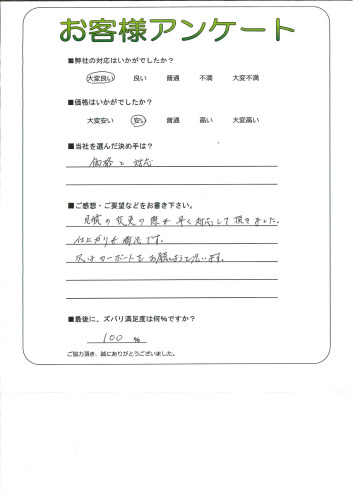 お客様アンケート
■弊社の対応はいかがでしたか?
大変良い 良い 普通 不満 大変不満
■価格はいかがでしたか?
大変安い 安い 普通 高い 大変高い
■当社を選んだ決め手は?
価格と対応
■ご感想・ご要望などをお書き下さい。
見積の変更の際も早く対応して頂きました。
仕上がりも満足です。
次はカーポートをお願いしようと思います。
■最後に、ズバリ満足度は何%ですか?
100 %
ご協力頂き、誠にありがとうございました。